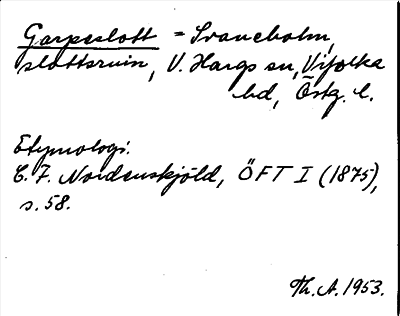 Garpeslott = Svaneholm,
slottsruin, V. Hargs sn, Vifolka
hd, Östg. l.
Etymologi:
C. F. Nordenskjöld, ÖFT I (1875),
s. 58.
Th. A. 1953.